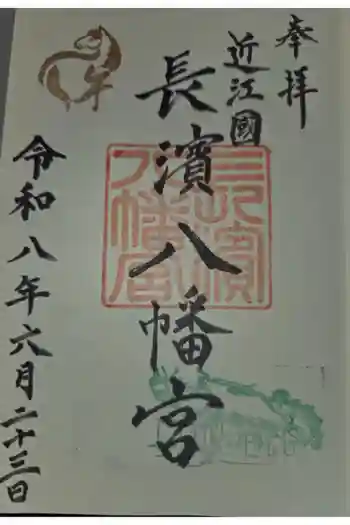 奉拝
近江國
長濱八幡宮
令和八年六月二十三日
午
長濱八幡宮